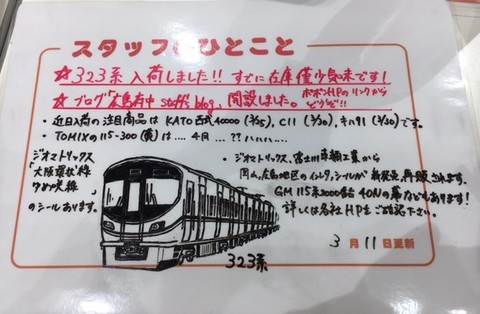 スタッフのひとこと
☆323系 入荷しました!! すでに在庫僅少気味です!
☆ブログ「広島府中 staff's blog」開設しました。ポポンHPのリンクから
どうぞ!!
・近日入荷の注目商品は KATO 西武40000 (3/25), C11 (3/30), キハ91 (3/30) です。
・TOMIXの115-300 (黄)は .... 4回 ...?? ハハハハ....
ジオマトリックス
"大阪環状線
ゆめ咲線
のシールあります。
・ジオマトリックス、富士川車輌工業から
岡山、広島地区のインレタ、シールが新発売、再販されます。
GM 115系2000番台 40Nの幕などもあります!
詳しくは各社HPをご確認下さい。
323系
3月11日更新